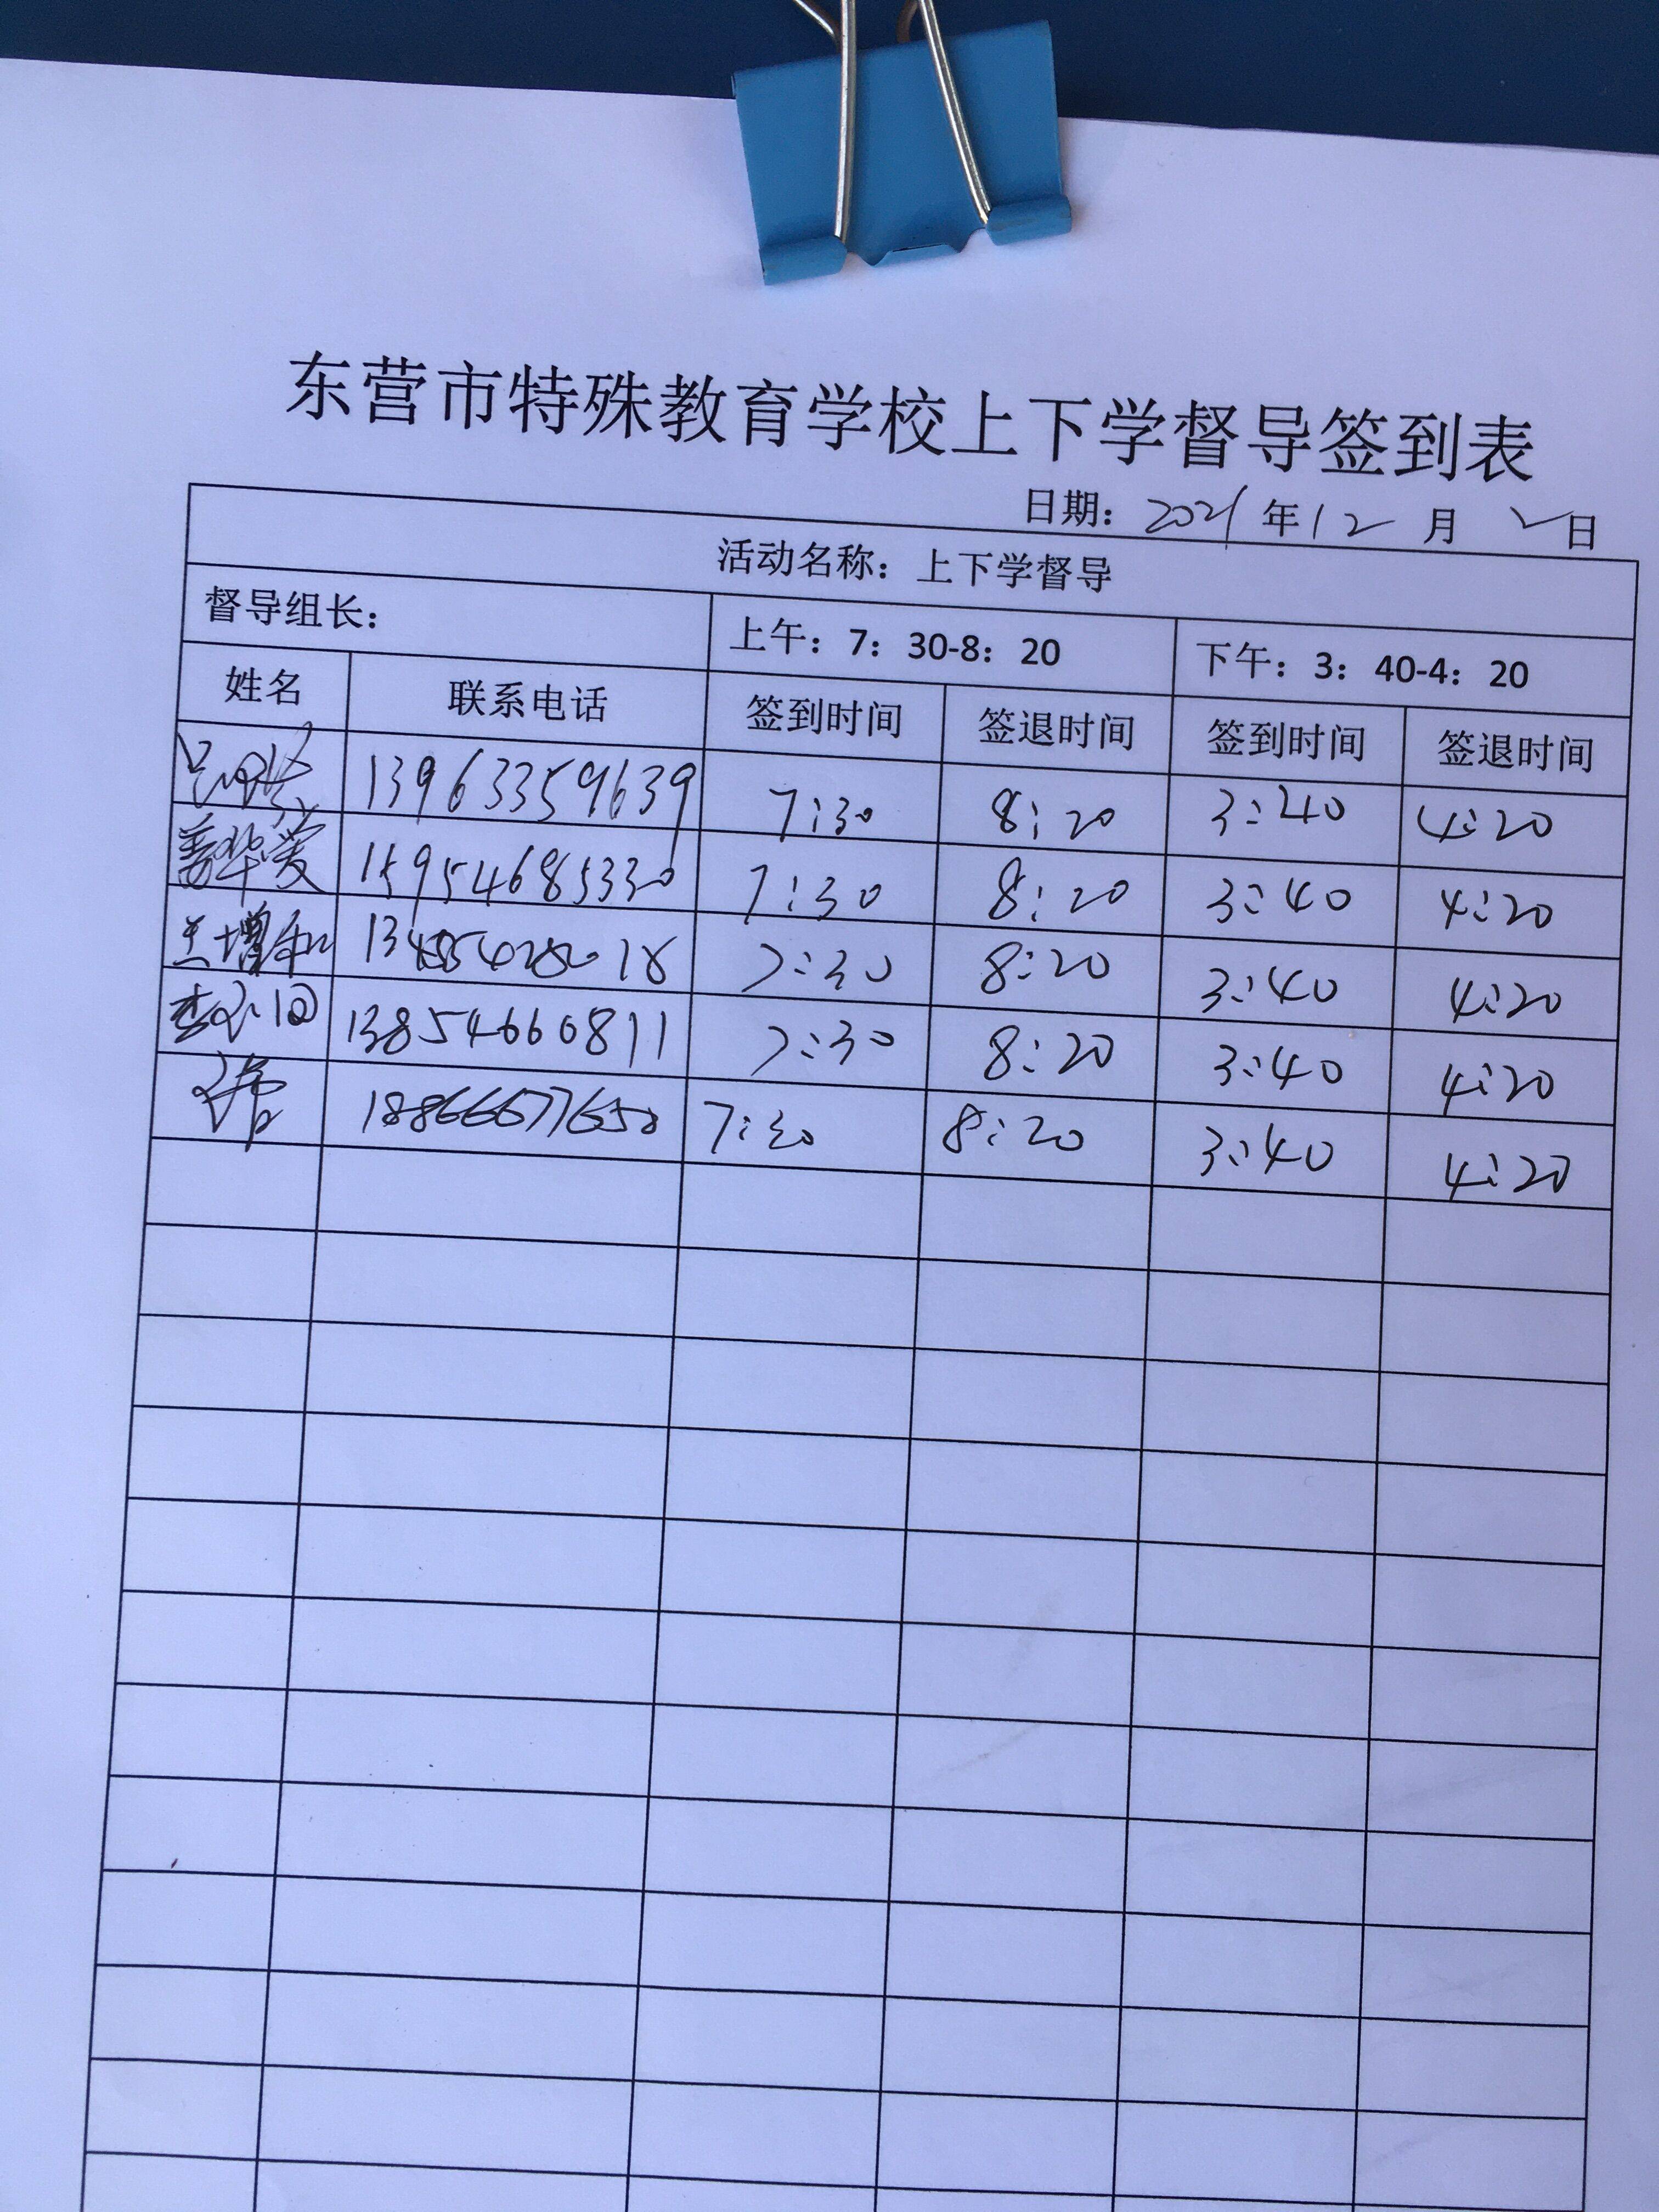 东营市特殊教育学校上下学督导签到表
日期：2021年12月2日
活动名称：上下学督导
督导组长： 上午：7：30-8：20 下午：3：40-4：20
姓名 联系电话 签到时间 签退时间 签到时间 签退时间
13963359639 7:30 8:20 3:40 4:20
姜华荣 15954685330 7:30 8:20 3:40 4:20
7:30 8:20 3:40 4:20
13854660811 7:30 8:20 3:40 4:20
18866677650 7:30 8:20 3:40 4:20